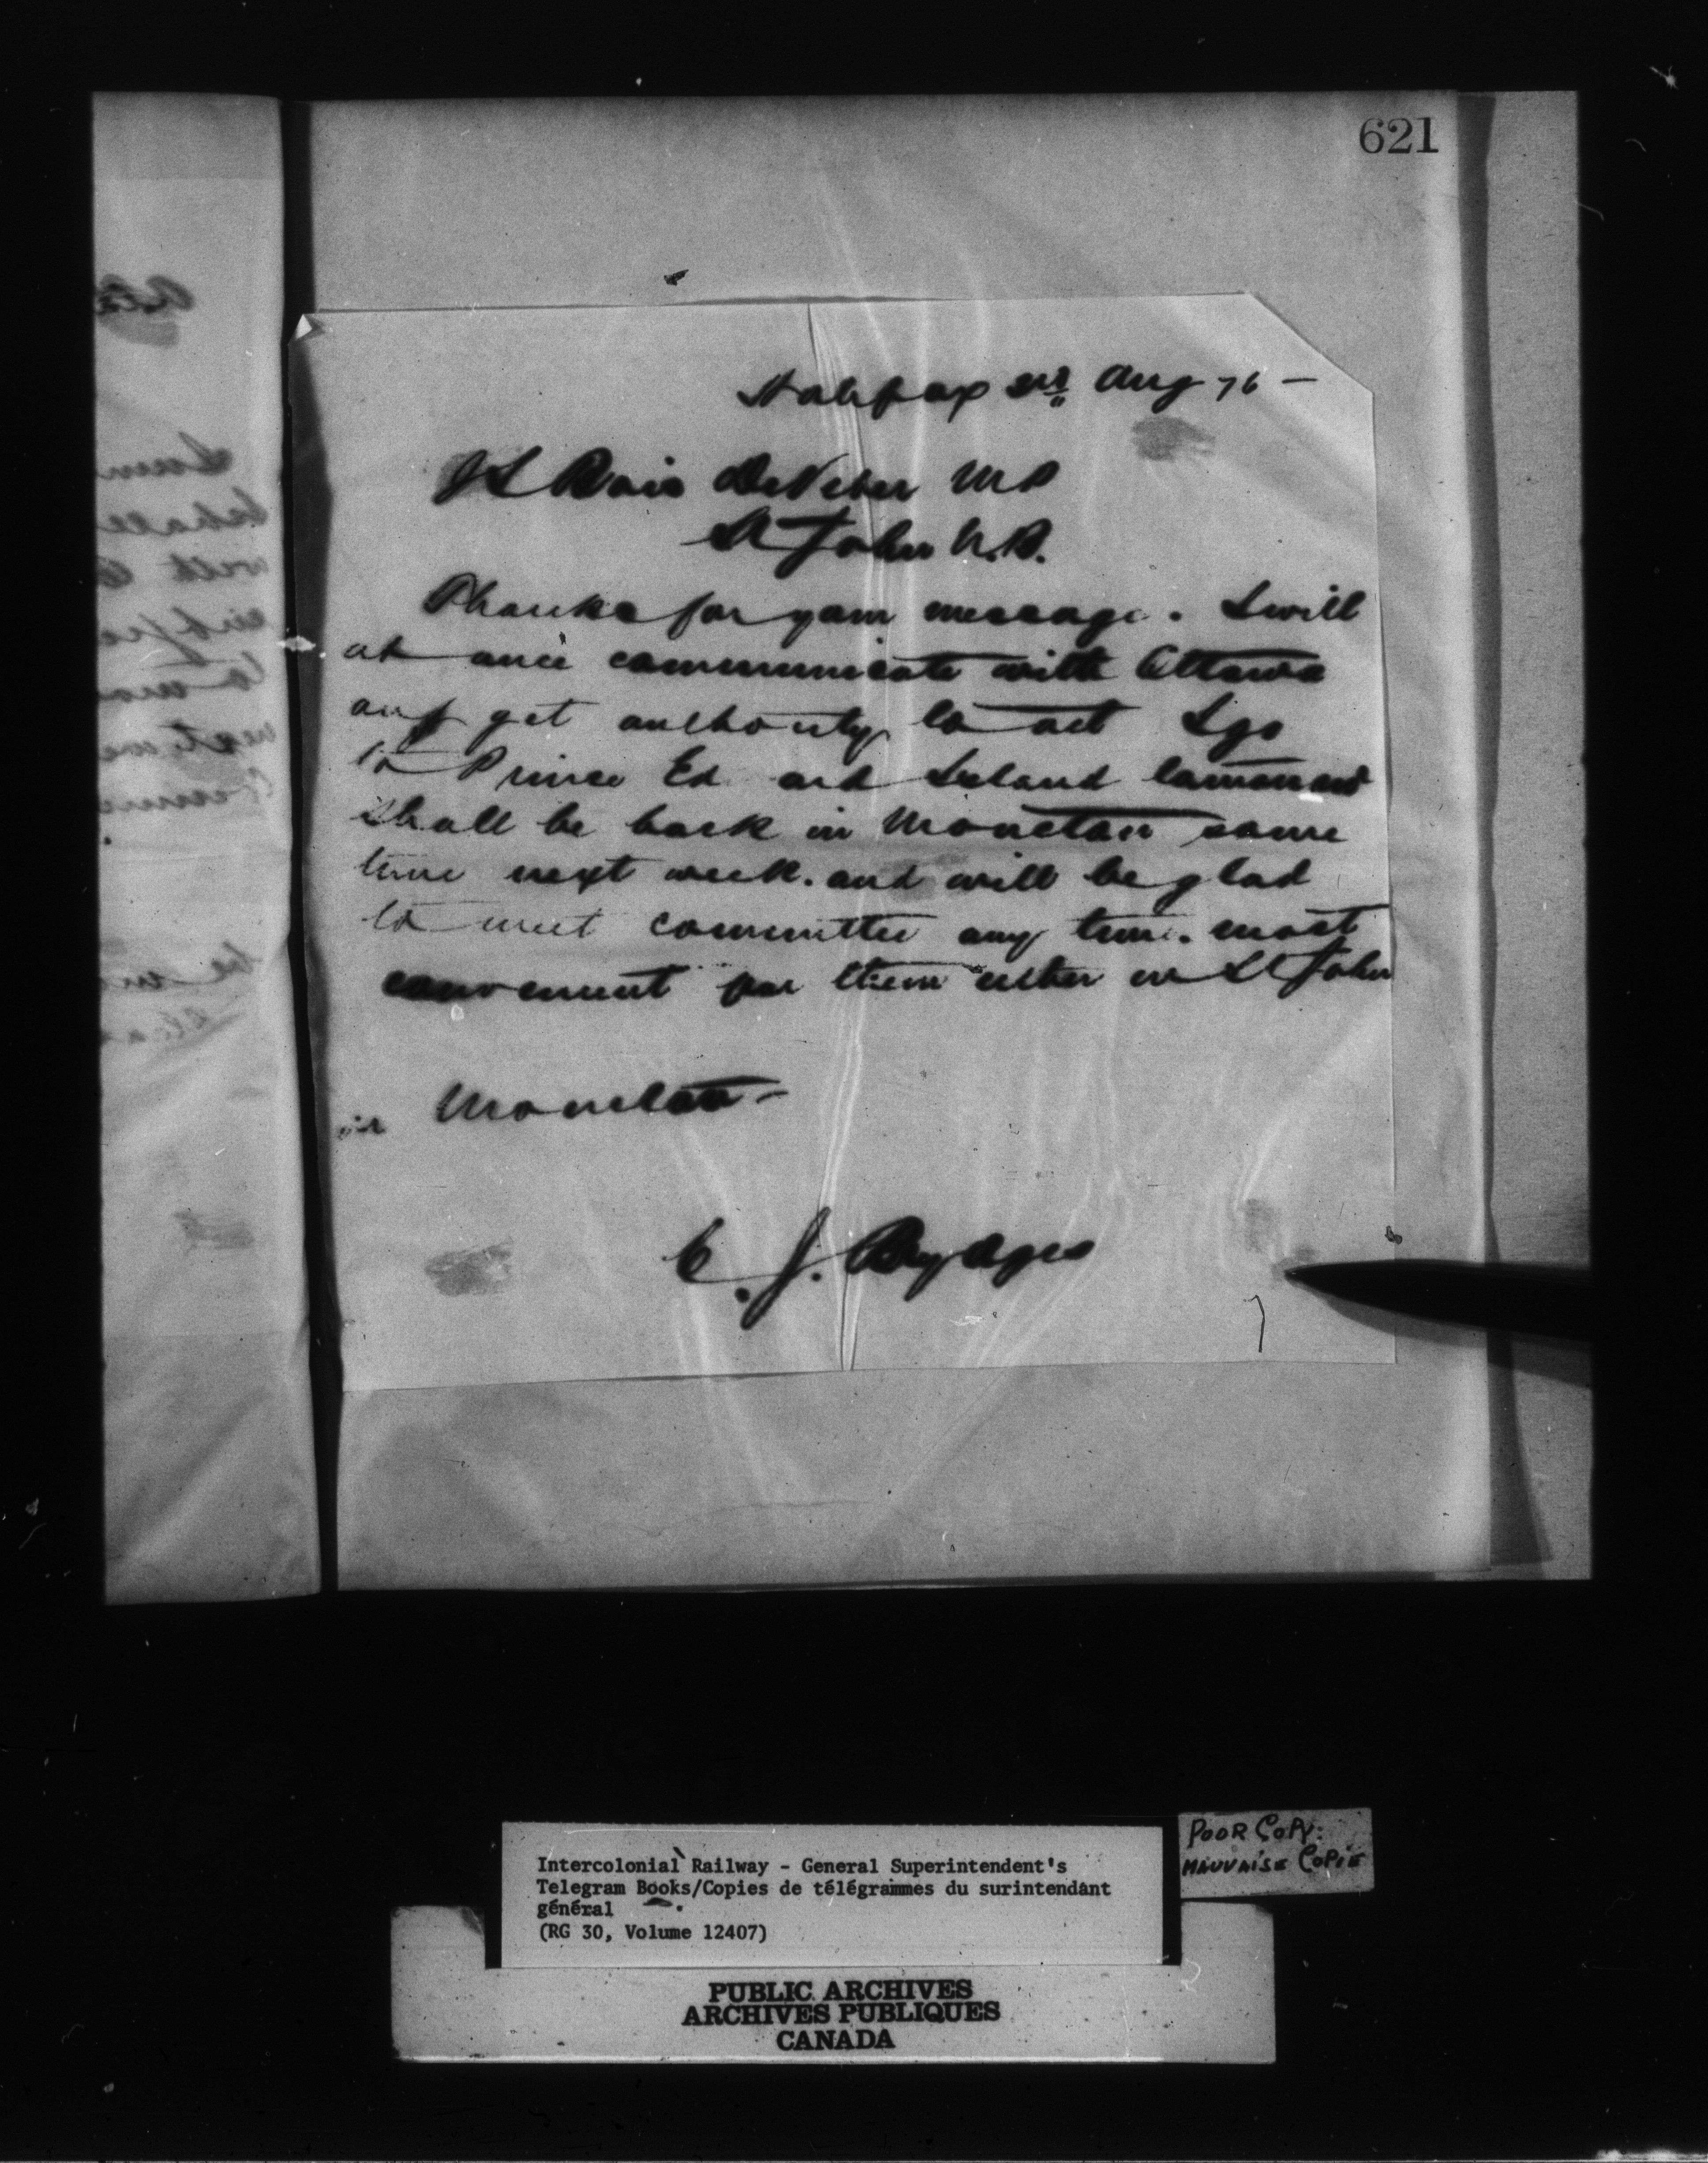 621
Halifax Aug 76 —
DeVeber M P
St John N.B.
Thanks for your message. I will
at once communicate with Ottawa
and get authority to act I go
to Prince Ed ard Island tomorrow
shall be back in Moncton some
time next week. and will be glad
to meet committee any time. most
convenient for them either in St John
or Moncton —
C. J. Brydges
POOR COPY:
MAUVAISE COPIE
Intercolonial Railway - General Superintendent's
Telegram Books/Copies de télégrammes du surintendant
général
(RG 30, Volume 12407)
PUBLIC ARCHIVES
ARCHIVES PUBLIQUES
CANADA